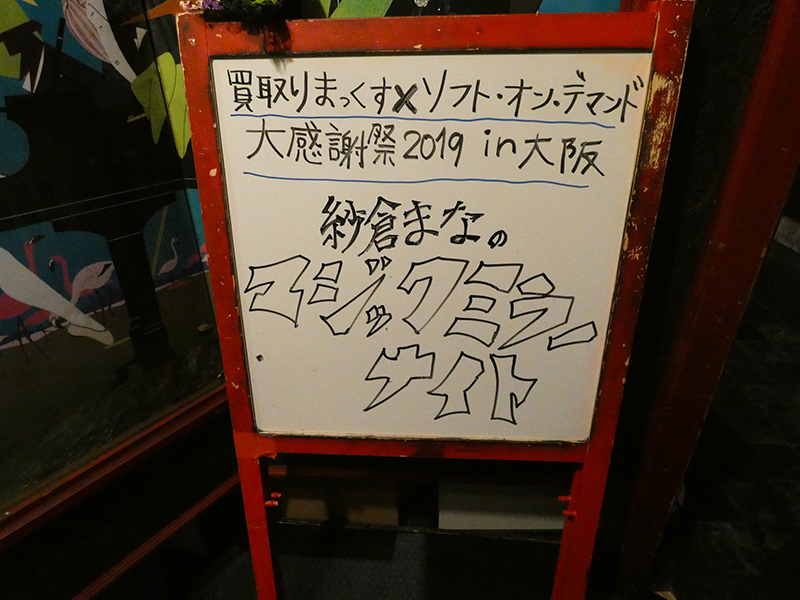 買取りまっくす×ソフト・オン・デマンド
大感謝祭2019 in大阪
紗倉まなの
マジックミラー
ナイト